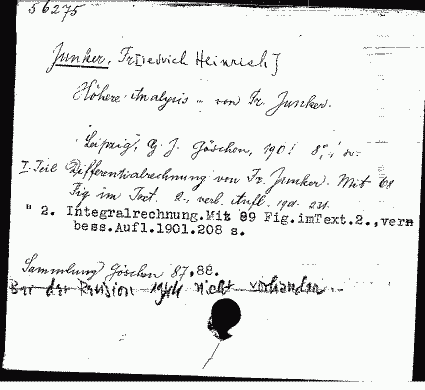 56275
Junker, Fr[iedrich Heinrich]
Höhere Analysis von Fr. Junker.
Leipzig, G. J. Göschen, 1901 8°,
I. Teil Differentialrechnung von Fr. Junker. Mit 68
Fig im Text. 2., verb. Aufl. 1901.
" 2. Integralrechnung.Mit 89 Fig.imText.2.,verm
bess.Aufl.1901.208 s.
Sammlung Göschen 87,88.
Bei der Revision 1944 nicht vorhanden.